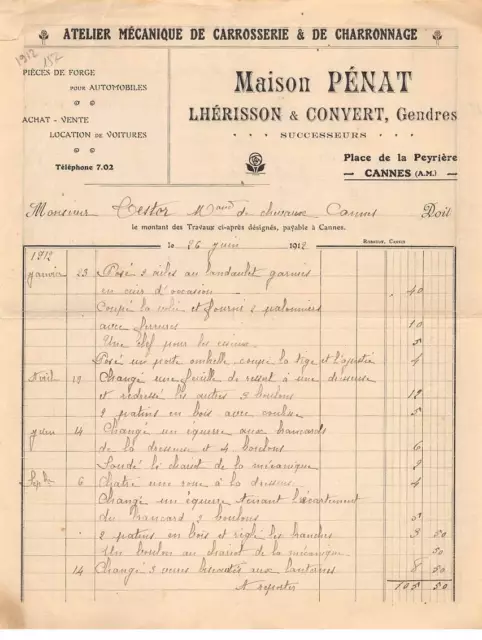 ATELIER MÉCANIQUE DE CARROSSERIE & DE CHARRONNAGE
1912
PIÈCES DE FORGE
POUR AUTOMOBILES
ACHAT - VENTE
LOCATION DE VOITURES
Téléphone 7.02
Maison PÉNAT
LHÉRISSON & CONVERT, Gendres
SUCCESSEURS
Place de la Peyrière
CANNES (A.M.)
Monsieur Testor Md de chevaux Cannes Doit
le montant des Travaux ci-après désignés, payable à Cannes.
le 26 juin 1912
1912
Janvier 23 Posé 2 ailes au landaulet garnies
en cuir d'occasion 40
Coupé la volée et fourni 2 palonniers
avec ferrures 10
Une clef pour les
Posé un porte ombrelle coupé la tige et l'ajusté 4
Avril 12 Changé une feuille de ressort à une
et redressé les autres 3 boulons 12
2 patins en bois avec 5
juin 14 Changé un équerre aux brancards
de la et 4 boulons 6
Soudé le de la mécanique
6 une roue à la 4
Changé un équerre l'écartement
du brancard 3 boulons
2 patins en bois et réglé les 3 50
Un boulon au de la mécanique 50
14 Changé 3 aux lanternes 8 50
A reporter 105 50